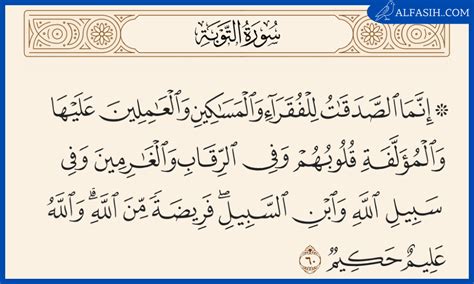 ALFASIH.COM
سُورَةُ التَّوْبَةِ
۞ إِنَّمَا ٱلصَّدَقَـٰتُ لِلْفُقَرَآءِ وَٱلْمَسَـٰكِينِ وَٱلْعَـٰمِلِينَ عَلَيْهَا
وَٱلْمُؤَلَّفَةِ قُلُوبُهُمْ وَفِى ٱلرِّقَابِ وَٱلْغَـٰرِمِينَ وَفِى
سَبِيلِ ٱللَّهِ وَٱبْنِ ٱلسَّبِيلِ ۖ فَرِيضَةً مِّنَ ٱللَّهِ ۗ وَٱللَّهُ
عَلِيمٌ حَكِيمٌ ٦٠